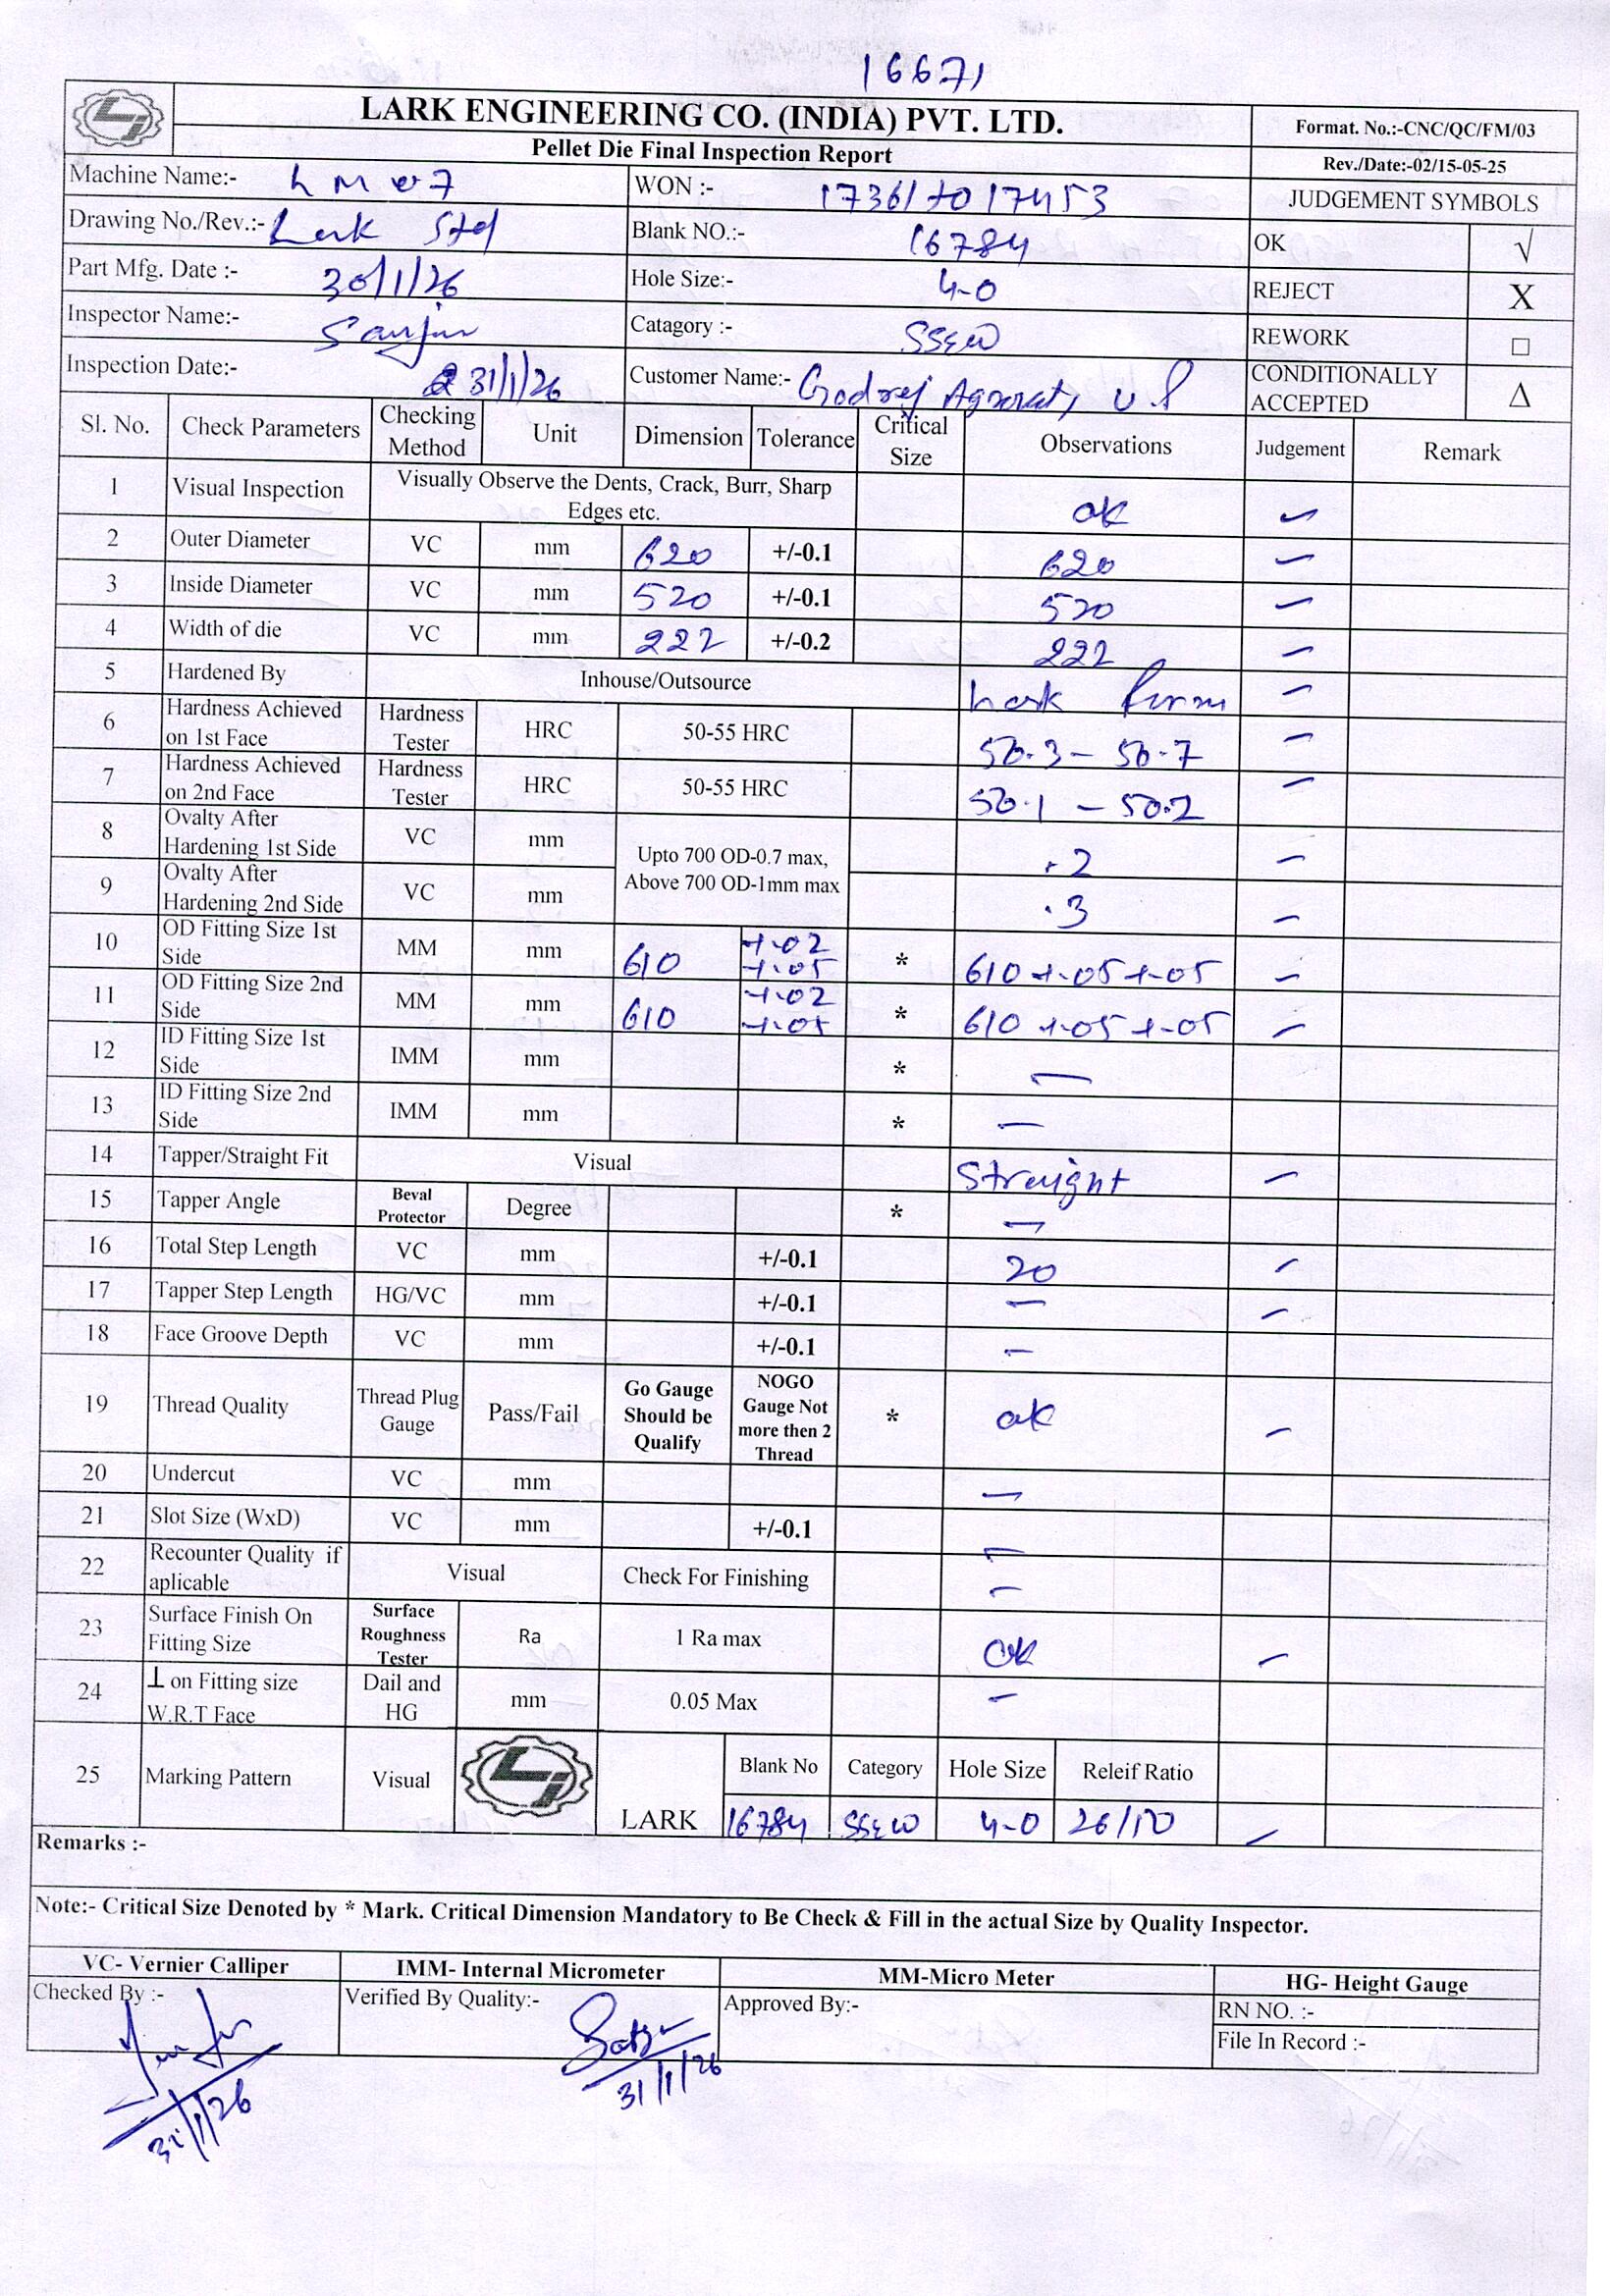 16671
LARK ENGINEERING CO. (INDIA) PVT. LTD.
Format. No.:-CNC/QC/FM/03
Pellet Die Final Inspection Report
Rev./Date:-02/15-05-25
Machine Name:- LM 07
WON :- 17361 to 17453
JUDGEMENT SYMBOLS
Drawing No./Rev.:- Lark Std
Blank NO.:- 16784
OK √
Part Mfg. Date :- 30/1/26
Hole Size:- 4-0
REJECT X
Inspector Name:-
Catagory :- SSEW
REWORK □
Inspection Date:- 31/1/26
Customer Name:- Godrej Agrovat, U.P
CONDITIONALLY ACCEPTED Δ
Sl. No. Check Parameters Checking Method Unit Dimension Tolerance Critical Size Observations Judgement Remark
1 Visual Inspection Visually Observe the Dents, Crack, Burr, Sharp Edges etc. ok
2 Outer Diameter VC mm 620 +/-0.1 620
3 Inside Diameter VC mm 520 +/-0.1 520
4 Width of die VC mm 222 +/-0.2 222
5 Hardened By Inhouse/Outsource Lark
6 Hardness Achieved on 1st Face Hardness Tester HRC 50-55 HRC 50.3 - 50.7
7 Hardness Achieved on 2nd Face Hardness Tester HRC 50-55 HRC 50.1 - 50.2
8 Ovalty After Hardening 1st Side VC mm Upto 700 OD-0.7 max, Above 700 OD-1mm max .2
9 Ovalty After Hardening 2nd Side VC mm .3
10 OD Fitting Size 1st Side MM mm 610 +.02 +.05 * 610 +.05 +.05
11 OD Fitting Size 2nd Side MM mm 610 +.02 +.05 * 610 +.05 +.05
12 ID Fitting Size 1st Side IMM mm * —
13 ID Fitting Size 2nd Side IMM mm * —
14 Tapper/Straight Fit Visual Straight
15 Tapper Angle Beval Protector Degree * —
16 Total Step Length VC mm +/-0.1 20
17 Tapper Step Length HG/VC mm +/-0.1 —
18 Face Groove Depth VC mm +/-0.1 —
19 Thread Quality Thread Plug Gauge Pass/Fail Go Gauge Should be Qualify NOGO Gauge Not more then 2 Thread * ok
20 Undercut VC mm —
21 Slot Size (WxD) VC mm +/-0.1 —
22 Recounter Quality if aplicable Visual Check For Finishing —
23 Surface Finish On Fitting Size Surface Roughness Tester Ra 1 Ra max OK
24 ⊥ on Fitting size W.R.T Face Dail and HG mm 0.05 Max —
25 Marking Pattern Visual LARK Blank No Category Hole Size Releif Ratio
16784 SSEW 4-0 26/10
Remarks :-
Note:- Critical Size Denoted by * Mark. Critical Dimension Mandatory to Be Check & Fill in the actual Size by Quality Inspector.
VC- Vernier Calliper IMM- Internal Micrometer MM-Micro Meter HG- Height Gauge
Checked By :- Verified By Quality:- Approved By:- RN NO. :-
File In Record :-
31/1/26
31/1/26